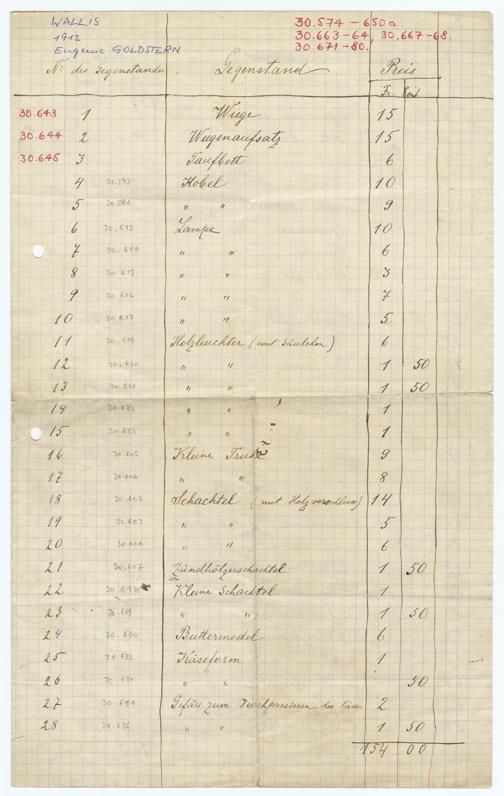 WALLIS
1912
Eugenie GOLDSTERN
30.574 – 650a
30.663 – 64, 30.667 – 68.
30.671 – 80.
Nº des Gegenstandes Gegenstand Preis
Fr.
30.643 1 Wiege 15
30.644 2 Wiegenaufsatz 15
30.645 3 Taufbett 6
4 30.593 Hobel 10
5 30.594 " " 9
6 30.613 Lampe 10
7 30.614 " " 6
8 30.615 " " 3
9 30.616 " " 7
10 30.617 " " 5
11 Holzleuchter (mit Säulchen) 6
12 " " 1 50
13 " " 1 50
14 " " 1
15 " " 1
16 30.605 Kleine Truhe 9
17 30.606 " " 8
18 30.602 Schachtel (mit Holzverschluss) 14
19 30.603 " " 5
20 30.604 " " 6
21 30.607 Zündhölzerschachtel 1 50
22 Kleine Schachtel 1
23 " " 1 50
24 Buttermodel 6
25 Käseform 1
26 " " 50
27 Gefäss zum Durchpassieren des 2
28 " " 1 50
154 00